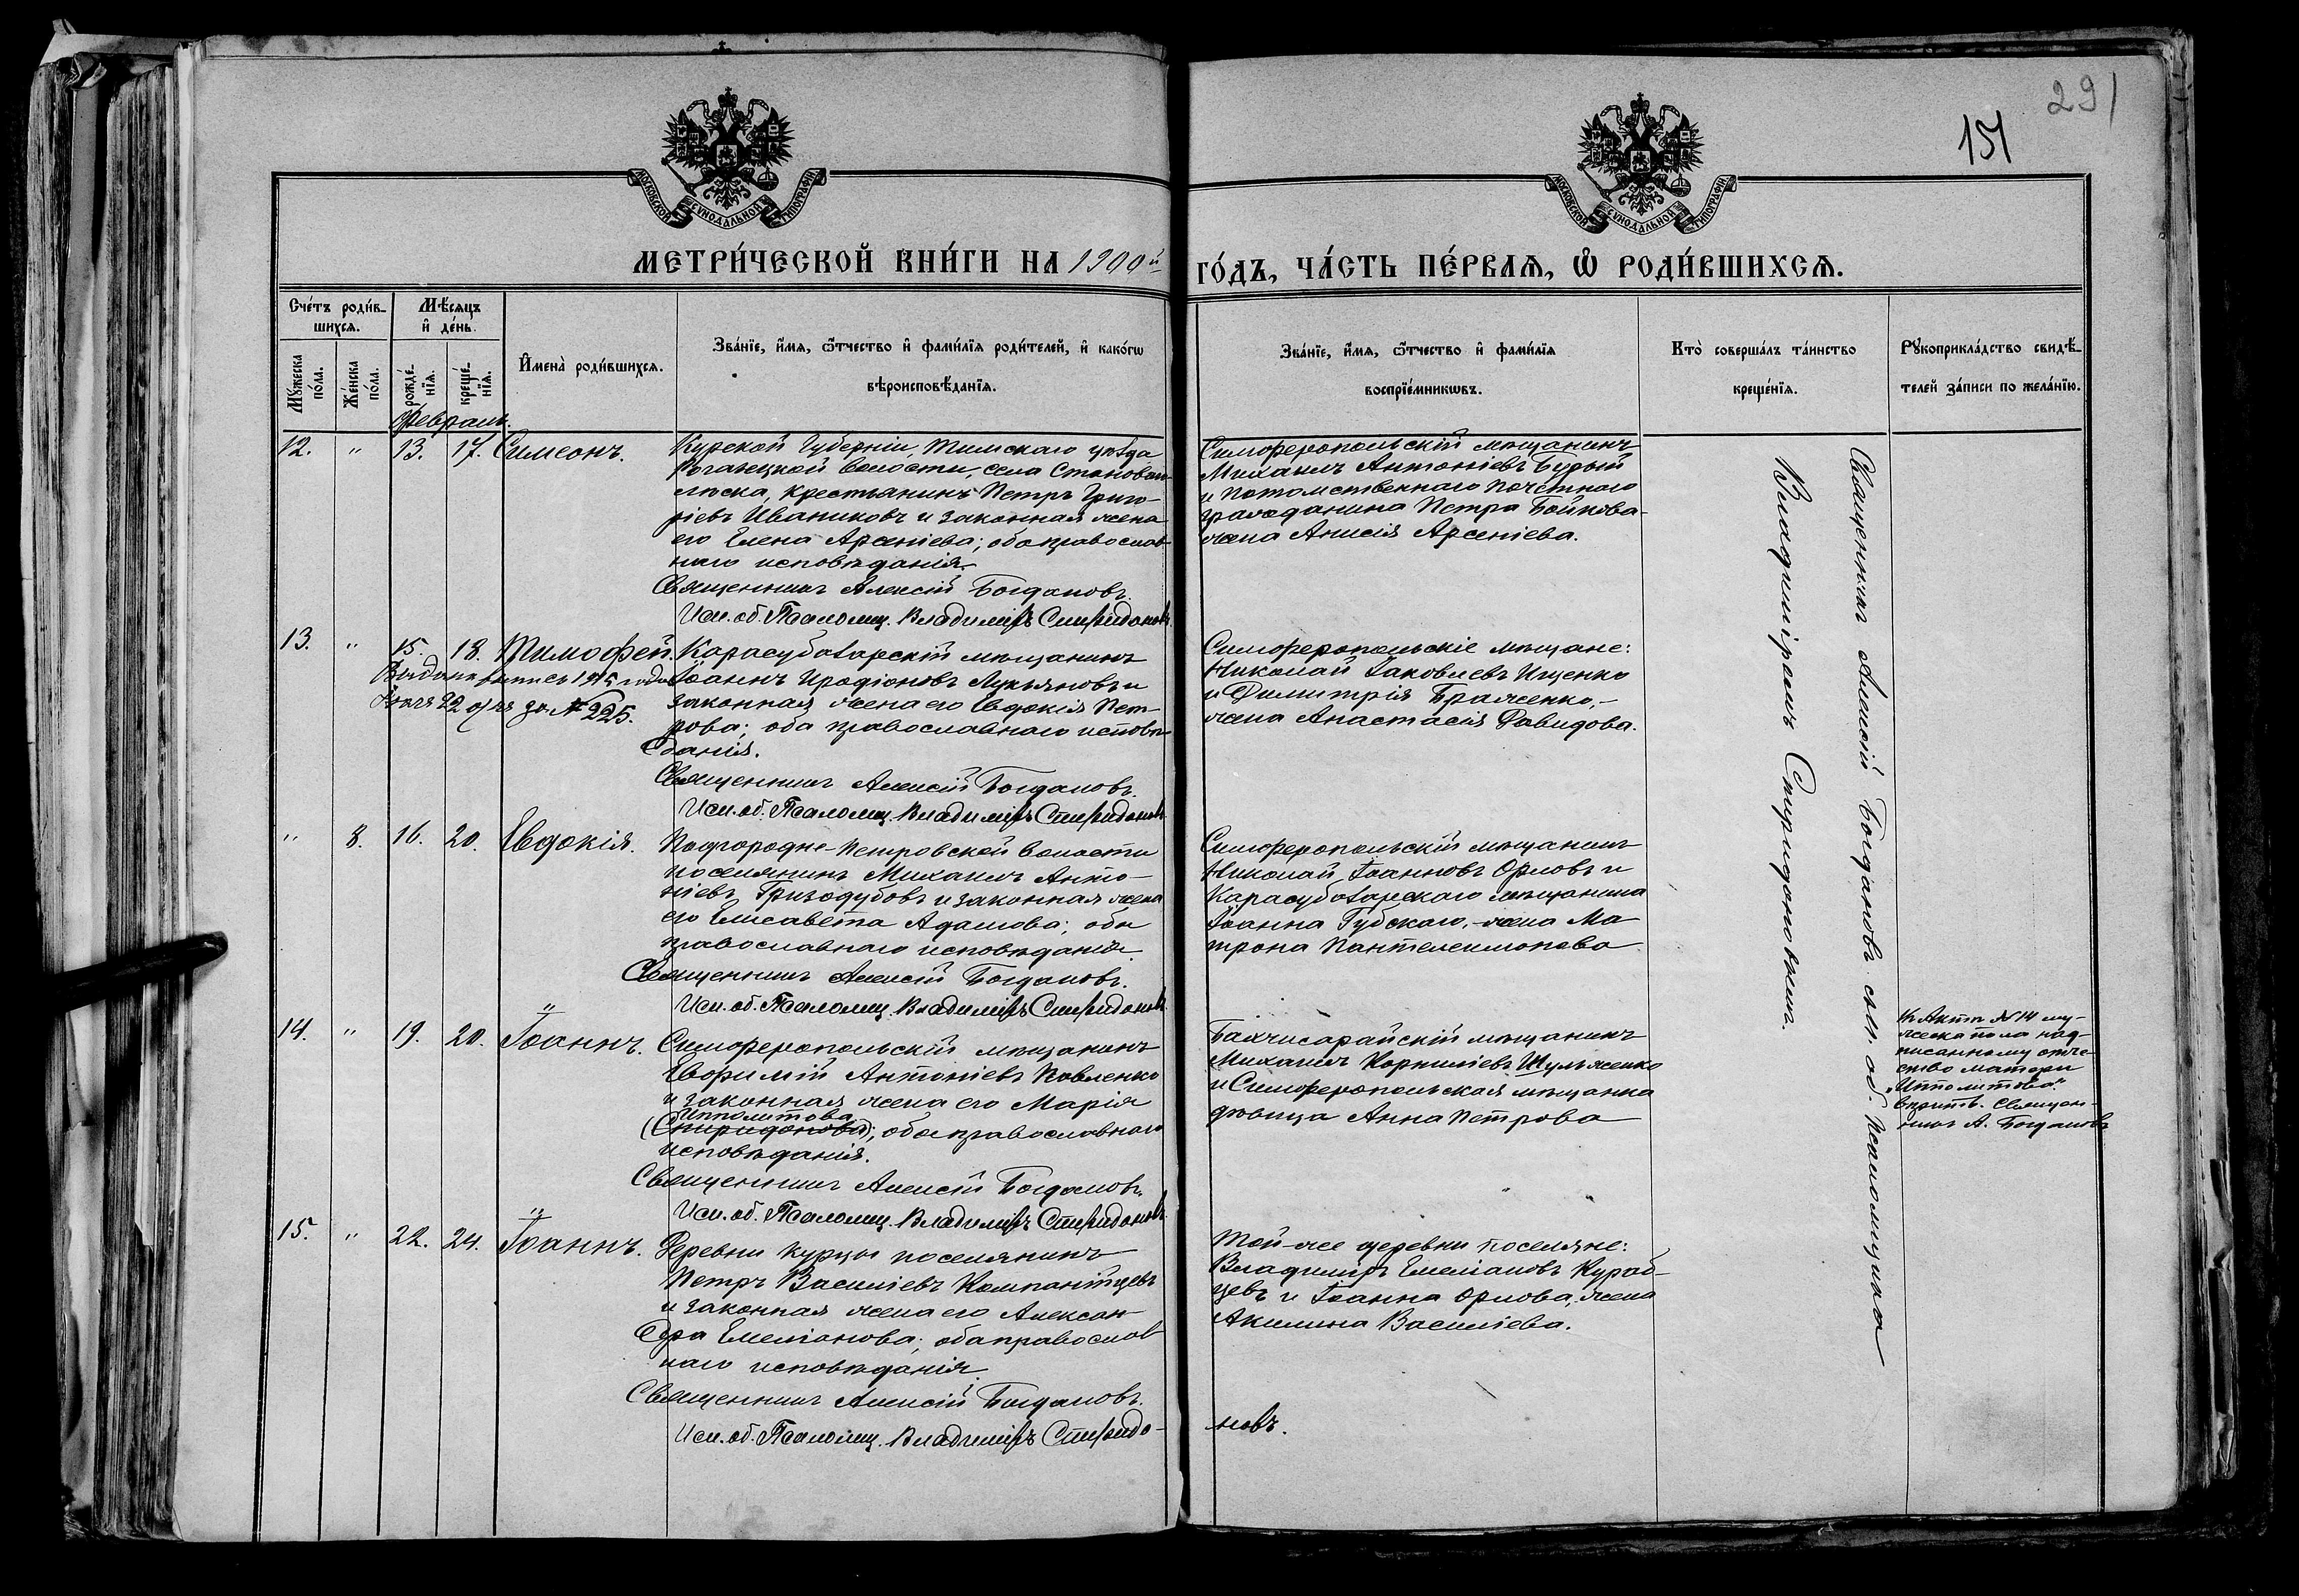 291
151
МОСКОВСКОЙ СѴНОДАЛЬНОЙ ТИПОГРАФІИ
МОСКОВСКОЙ СѴНОДАЛЬНОЙ ТИПОГРАФІИ
МЕТРИ́ЧЕСКОЙ КНИ́ГИ НА 1900й ГО́ДЪ, ЧА́СТЬ ПЕ́РВАѦ, Ѡ҆ РОДИ́ВШИХСѦ.
Сче́тъ роди́в-
шихсѧ.
Мѣ́сѧцъ
и҆ де́нь.
Мꙋ́жеска
по́ла.
Же́нска
по́ла.
рожде́-
нїѧ.
креще́-
нїѧ.
И҆мена̀ роди́вшихсѧ.
Зва́нїе, и҆́мѧ, ѻ҆́тчество и҆ фами́лїѧ роди́телей, и҆ како́гѡ
вѣроисповѣ́данїѧ.
Зва́нїе, и҆́мѧ, ѻ҆́тчество и҆ фами́лїѧ
воспрїе́мникѡвъ.
Кто̀ соверша́лъ та́инство
креще́нїѧ.
Рꙋкоприкла́дство свидѣ́-
телей за́писи по жела́нїю.
Февраль.
12. " 13. 17. Симеонъ.
Курской Губерніи, Тимскаго уѣзда
волости, села
крестьянинъ Петръ Григо-
ріевъ Иваниковъ и законная жена
его Елена Арсеніева; оба православ-
наго исповѣданія.
Священникъ Алексій Богдановъ.
Исп. об. Псаломщ. Владиміръ Спиридоновъ.
Симферопольскій мѣщанинъ
Михаилъ Антоніевъ Бурый
и потомственнаго почетнаго
гражданина Петра Бойкова-
жена Анисія Арсеніева.
13. " 15. 18. Тимофей.
Выдана выпись 1915 года
22 дня за № 225.
Карасубазарскій мѣщанинъ
Іоаннъ Иродіоновъ Лукьяновъ и
законная жена его Евдокія Пет-
рова; оба православнаго исповѣ-
данія.
Священникъ Алексій Богдановъ.
Исп. об. Псаломщ. Владиміръ Спиридоновъ
Симферопольскіе мѣщане:
Николай Іаковлевъ Ищенко
и Димитрія Браженко,-
жена Анастасія Давидова.
" 8. 16. 20. Евдокія.
Подгородне-Петровской волости
поселянинъ Михаилъ Анто-
ніевъ Гризодубовъ и законная жена
его Елисавета Адамова; оба
православнаго исповѣданія.
Священникъ Алексій Богдановъ.
Исп. об. Псаломщ. Владиміръ Спиридоновъ
Симферопольскій мѣщанинъ
Николай Іоанновъ Орловъ и
Карасубазарскаго мѣщанина
Іоанна Губскаго,-жена Ма
трона Пантелеимонова
14. " 19. 20. Іоаннъ.
Симферопольскій мѣщанинъ
Евфимій Антоніевъ Павленко
и законная жена его Марія
Ипполитова
(Спиридонова); оба православнаго
исповѣданія.
Священникъ Алексій Богдановъ.
Исп. об. Псаломщ. Владиміръ Спиридоновъ
Бахчисарайскій мѣщанинъ
Михаилъ Корниліевъ Шульженко
и Симферопольская мѣщанка
дѣвица Анна Петрова
Къ Акту №14 му-
жеска пола над-
писанному отче-
ство матери
"Ипполитова"
вѣрить. Священ-
никъ А. Богдановъ
15. " 22. 24. Іоаннъ.
Деревни Курцы поселянинъ
Петръ Василіевъ Компанійцевъ
и законная жена его Алексан
дра Емеліанова; оба православ
наго исповѣданія.
Священникъ Алексій Богдановъ.
Исп. об. Псаломщ. Владиміръ Спиридо-
новъ.
Той-же деревни поселяне:
Владиміръ Емеліановъ Кураб-
цевъ и Іоанна Орлова, жена
Акилина Василіева.
Священникъ Алексій Богдановъ съ И. об. Псаломщика
Владиміромъ Спиридоновымъ.